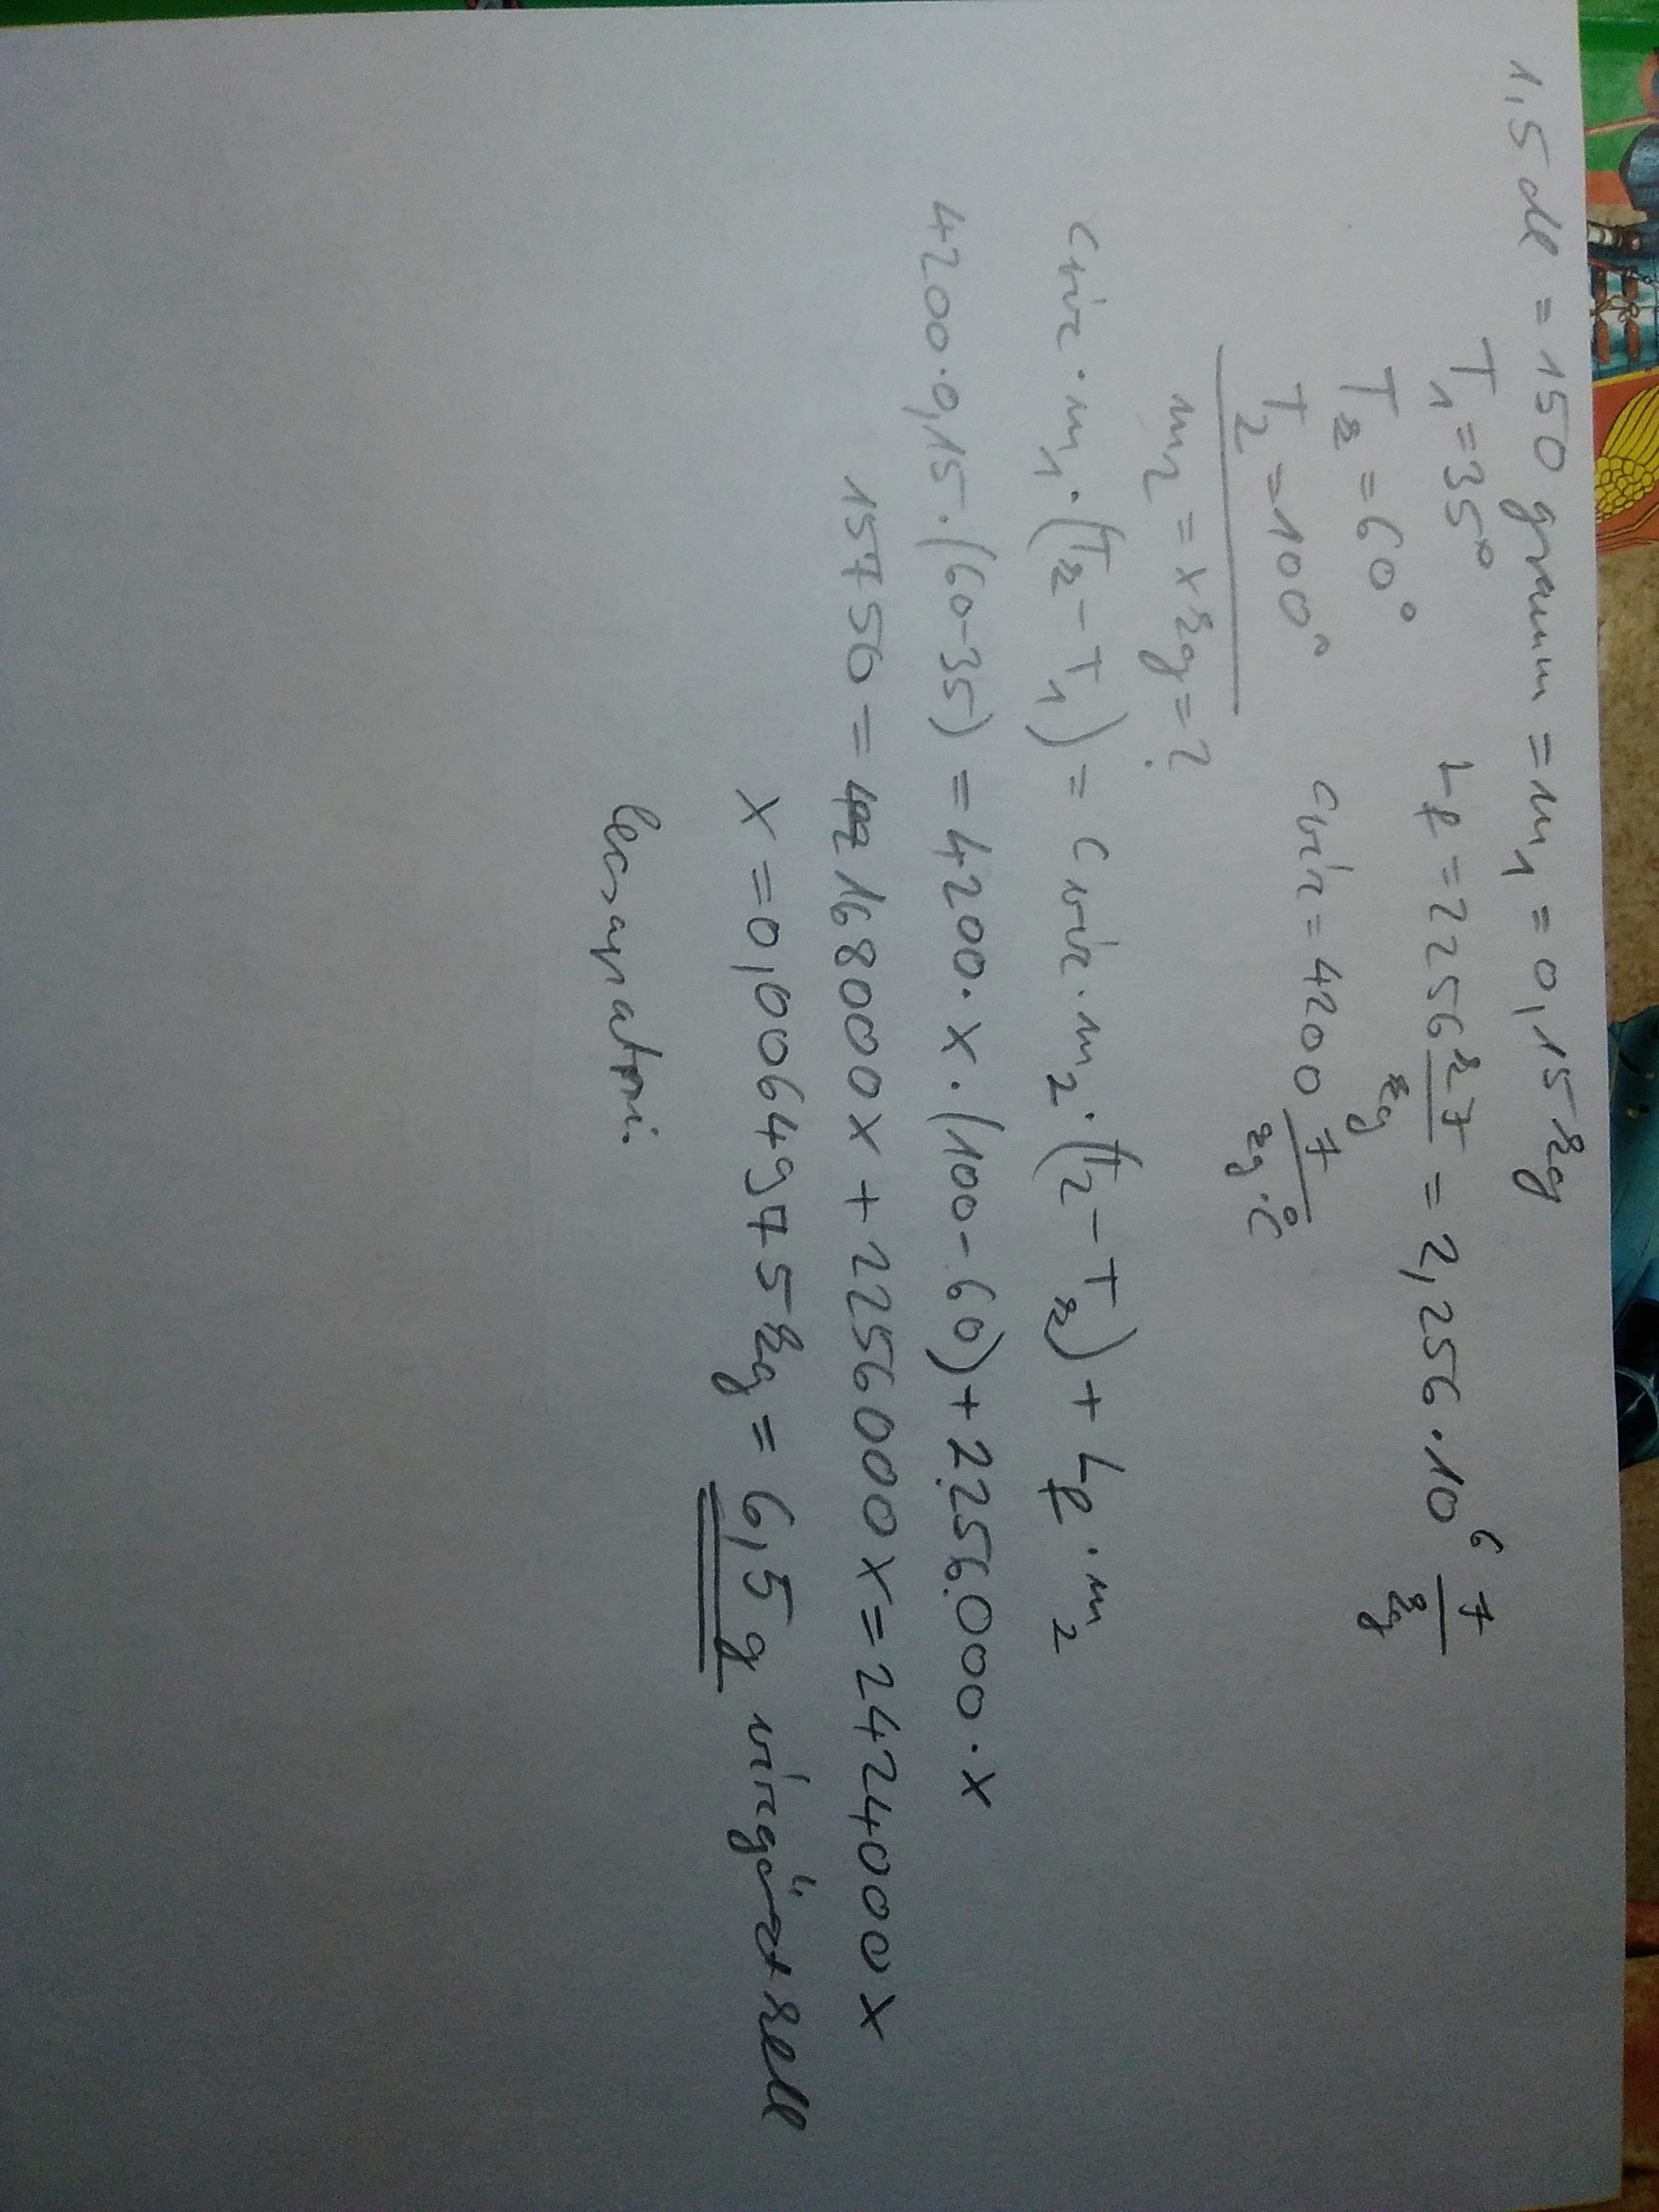 1,5 dl = 150 gramm = m₁ = 0,15 kg
T₁ = 35°
L_f = 2256 kJ/kg = 2,256 · 10⁶ J/kg
T_k = 60°
T₂ = 100°
c_víz = 4200 J/kg·°C
m₂ = x kg = ?
c_víz · m₁ · (T_k - T₁) = c_víz · m₂ · (T₂ - T_k) + L_f · m₂
4200 · 0,15 · (60-35) = 4200 · x · (100-60) + 2.256.000 · x
15750 = 168000x + 2256000x = 2424000x
x = 0,0064975 kg = 6,5 g vízgőzt kell
lecsapatni.